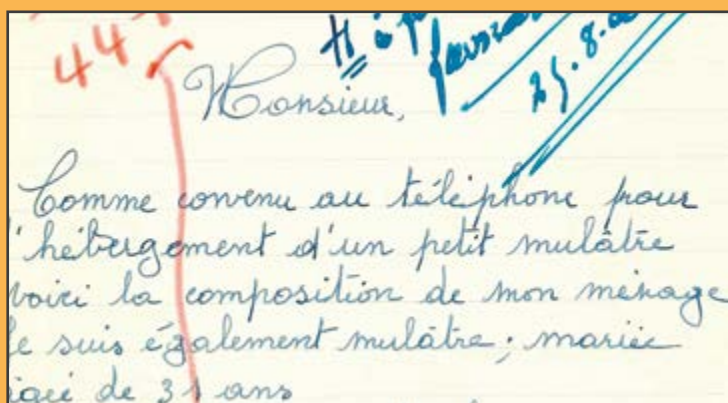 44
Monsieur,
25.8.
Comme convenu au téléphone pour
l'hébergement d'un petit mulâtre
voici la composition de mon ménage
je suis également mulâtre; mariée
âgée de 31 ans